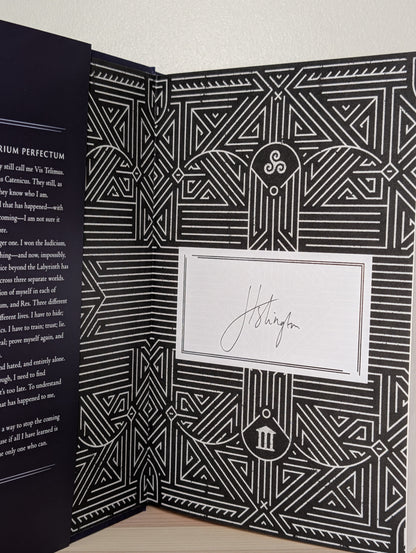 RIUM PERFECTUM
y still call me Vis Telimus.
s Catenicus. They still, as
hey know who I am.
d that has happened—with
coming—I am not sure it
ore.
ger one. I won the Iudicium,
thing—and now, impossibly,
ice beyond the Labyrinth has
cross three separate worlds.
ion of myself in each of
um, and Res. Three different
fferent lives. I have to hide;
cs. I have to train; trust; lie.
eal; prove myself again, and
nd hated, and entirely alone.
ough, I need to find
t's too late. To understand
hat has happened to me,
a way to stop the coming
use if all I have learned is
e only one who can.
J Islington